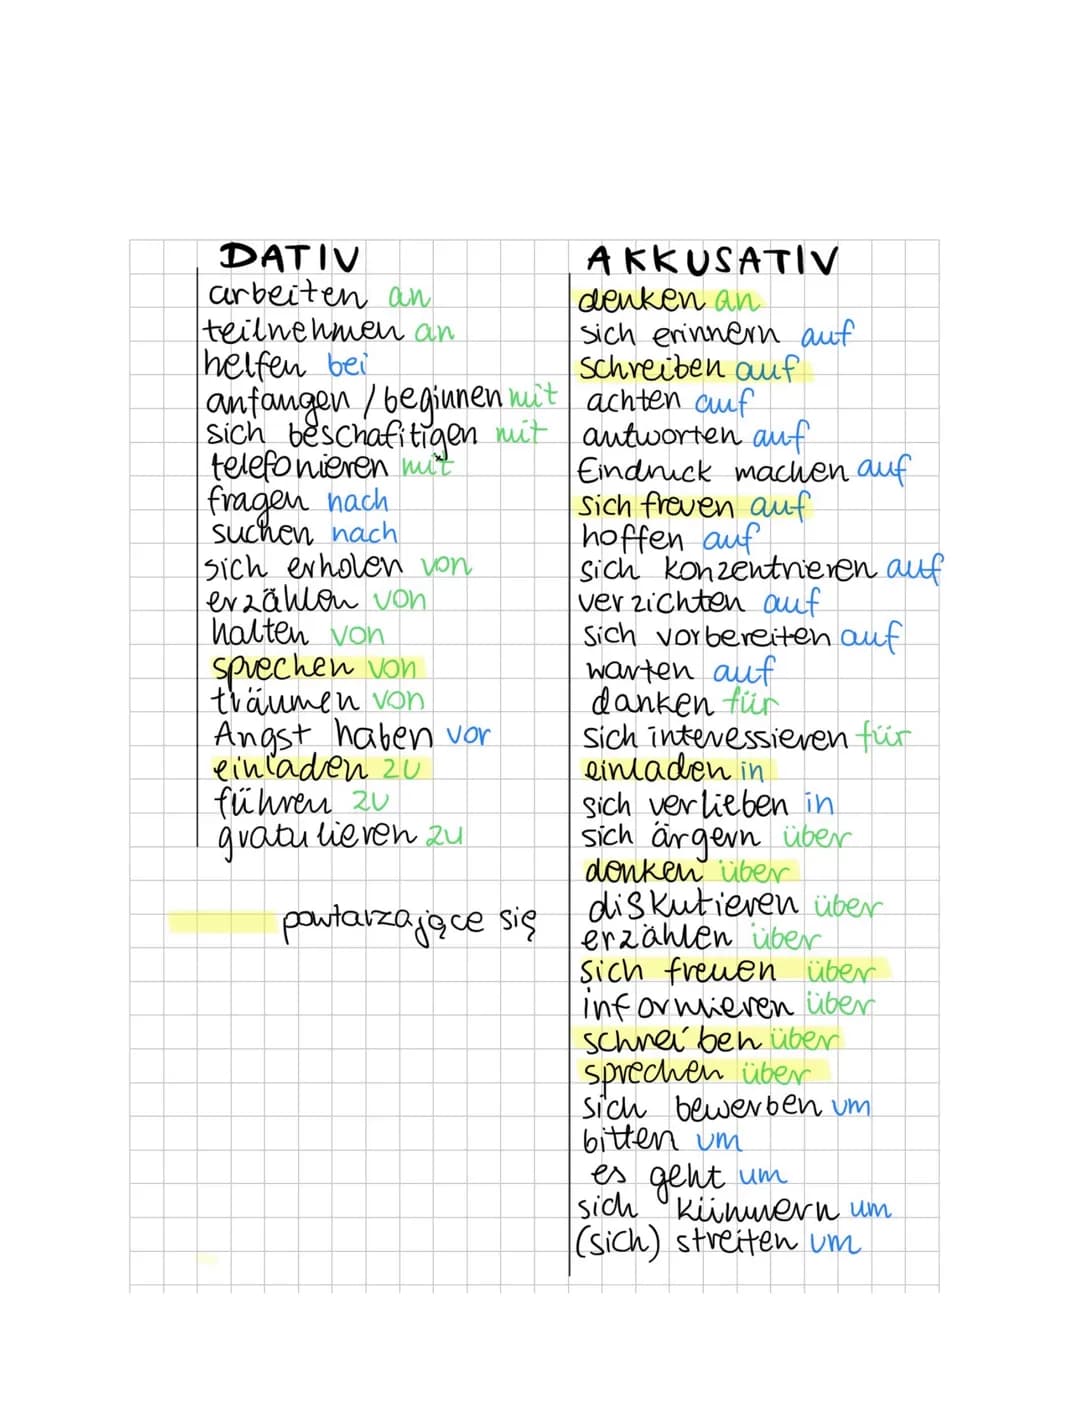 DATIV
arbeiten an
teilnehmen an
helfen bei
anfangen / beginnen mit
sich beschafitigen mit
telefonieren mit
fragen nach
suchen nach
sich erholen von
erzählen von
halten von
sprechen von
träumen von
Angst haben vor
einladen zu
führen zu
gratulieren zu
powtarzające się
AKKUSATIV
denken an
sich erinnern auf
schreiben auf
achten auf
antworten auf
Eindruck machen auf
sich freuen auf
hoffen auf
sich konzentrieren auf
verzichten auf
sich vorbereiten auf
warten auf
danken für
sich interessieren für
einladen in
sich verlieben in
sich ärgern über
denken über
diskutieren über
erzählen über
sich freuen über
informieren über
schreiben über
sprechen über
sich bewerben um
bitten um
es geht um
sich kümmern um
(sich) streiten um